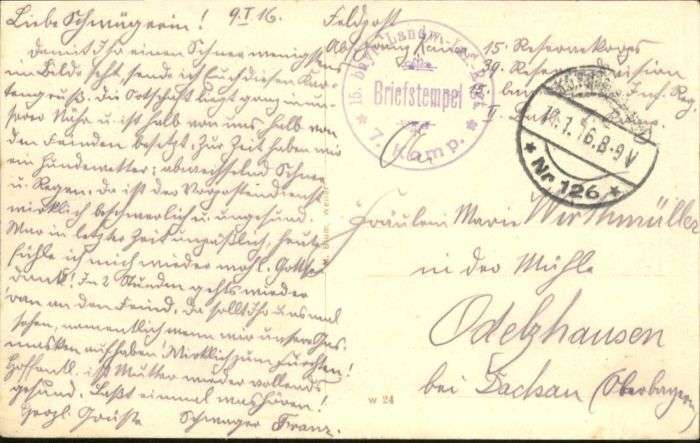 Liebe Schwägerin! 9.I.16.
Damit Ihr einen Schnee wenigstens
im Bilde seht, sende ich Euch diesen Kar-
tengruß. Die Ortschaft liegt ganz in un-
serer Nähe u. ist halb von uns halb von
den Feinden besetzt. Zur Zeit haben wir
ein Hundewetter; abwechselnd Schnee
u. Regen, da ist der Vorpostendienst
wirklich beschwerlich u. ungesund.
War in letzter Zeit unpäßlich, heute
fühle ich mich wieder wohl, Gott sei
Dank! In 2 Stunden gehts wieder
'ran an den Feind, da sollt Ihr uns mal
sehen, namentlich wenn wir unsere Gas-
masken aufhaben! Wirklich zum Fürchten!
Hoffentl. ist Mutter wieder vollends
gesund. Laßt einmal was hören!
Herzl. Grüße Schwager Franz.
Feldpost
Abs. Franz
15. Reservekorps
39. Reservedivision
Inf. Reg
II.
15. bayr. Landw. Inf. Regt.
Briefstempel
7. Komp.
11.1.16. 8-9 V
Nr. 126
Fräulein Marie Wirthmüller
in der Mühle
Odelzhausen
bei Dachau (Oberbayern
w 24